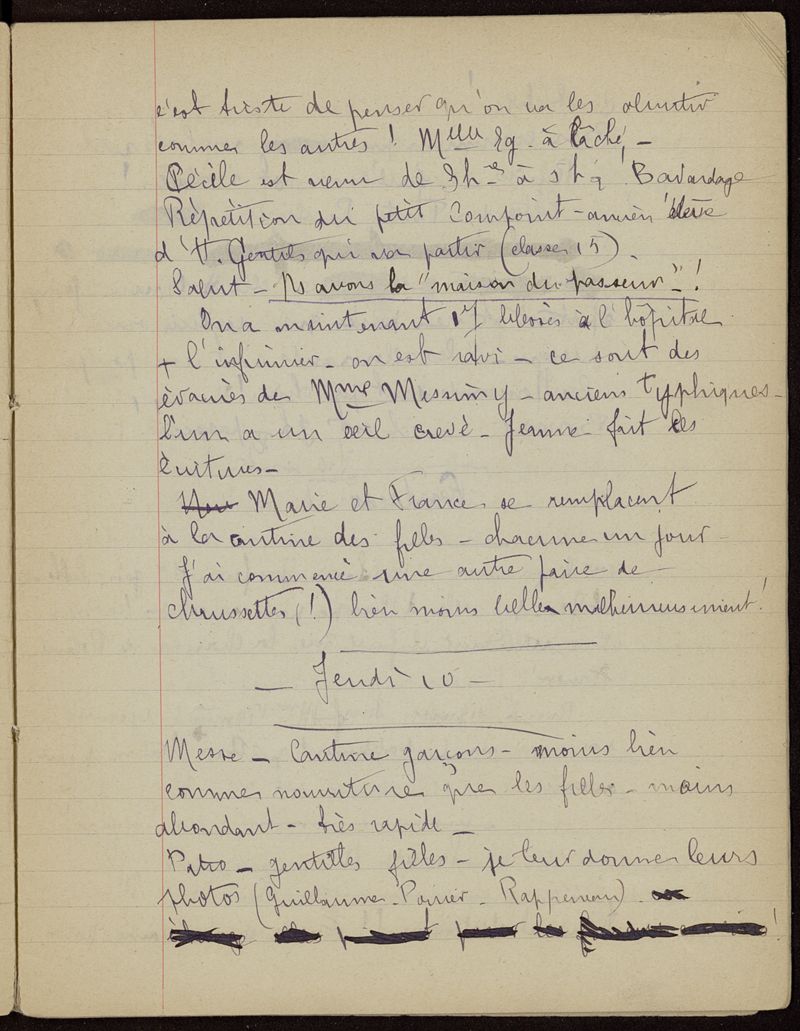 c'est triste de penser qu'on va les abrutir
comme les autres ! Melle Eg. a lâché –
Cécile est venue de 3h à 5h ! Bavardage
Répétition du petit Compoint – ancien élève
d' V. Gentils qui va partir (classe 15).
Salut – Ns avons la "maison du passeur" !
On a maintenant 17 blessés à l'hôpital
+ l'infirmier – on est ravi – ce sont des
évacués de Mme Messimy – anciens typhiques –
l'un a un œil crevé – Jeanne fait les
Marie et France se remplacent
à la cantine des filles – chacune un jour
J'ai commencé une autre paire de
chaussettes (!) bien moins belle malheureusement !
– Jeudi 10 –
Messe – Cantine garçons – moins bien
comme nourriture que les filles – moins
abondant – très rapide –
Patro – gentilles filles – je leur donne leurs
photos (Guillaume – Poirier – Rappeneau).